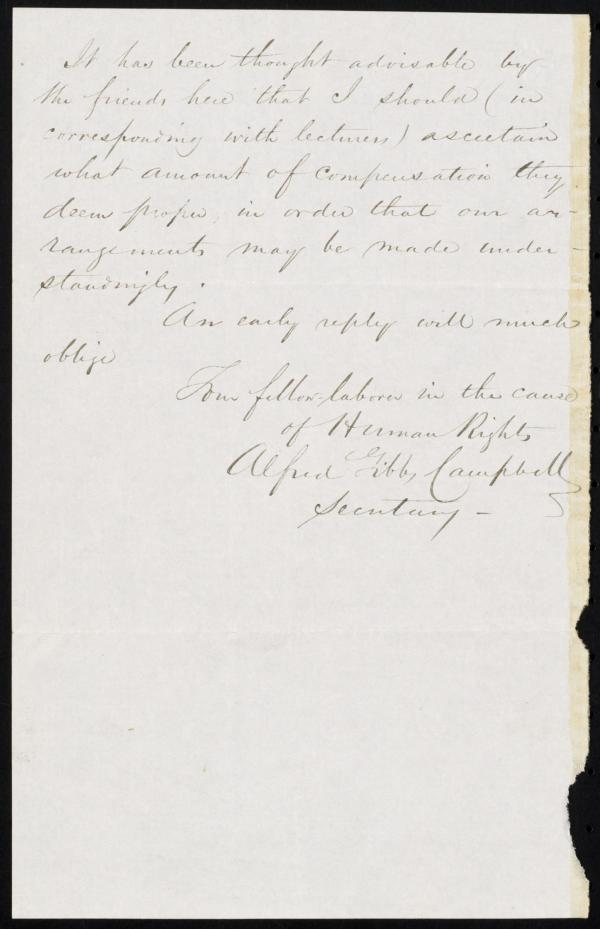 It has been thought advisable by
the friends here that I should (in
corresponding with lecturers) ascertain
what amount of compensation they
deem proper, in order that our ar-
rangements may be made under-
standingly.
An early reply will much
oblige
Your fellow-laborer in the cause
of Human Rights
Alfred Gibbs Campbell
Secretary -